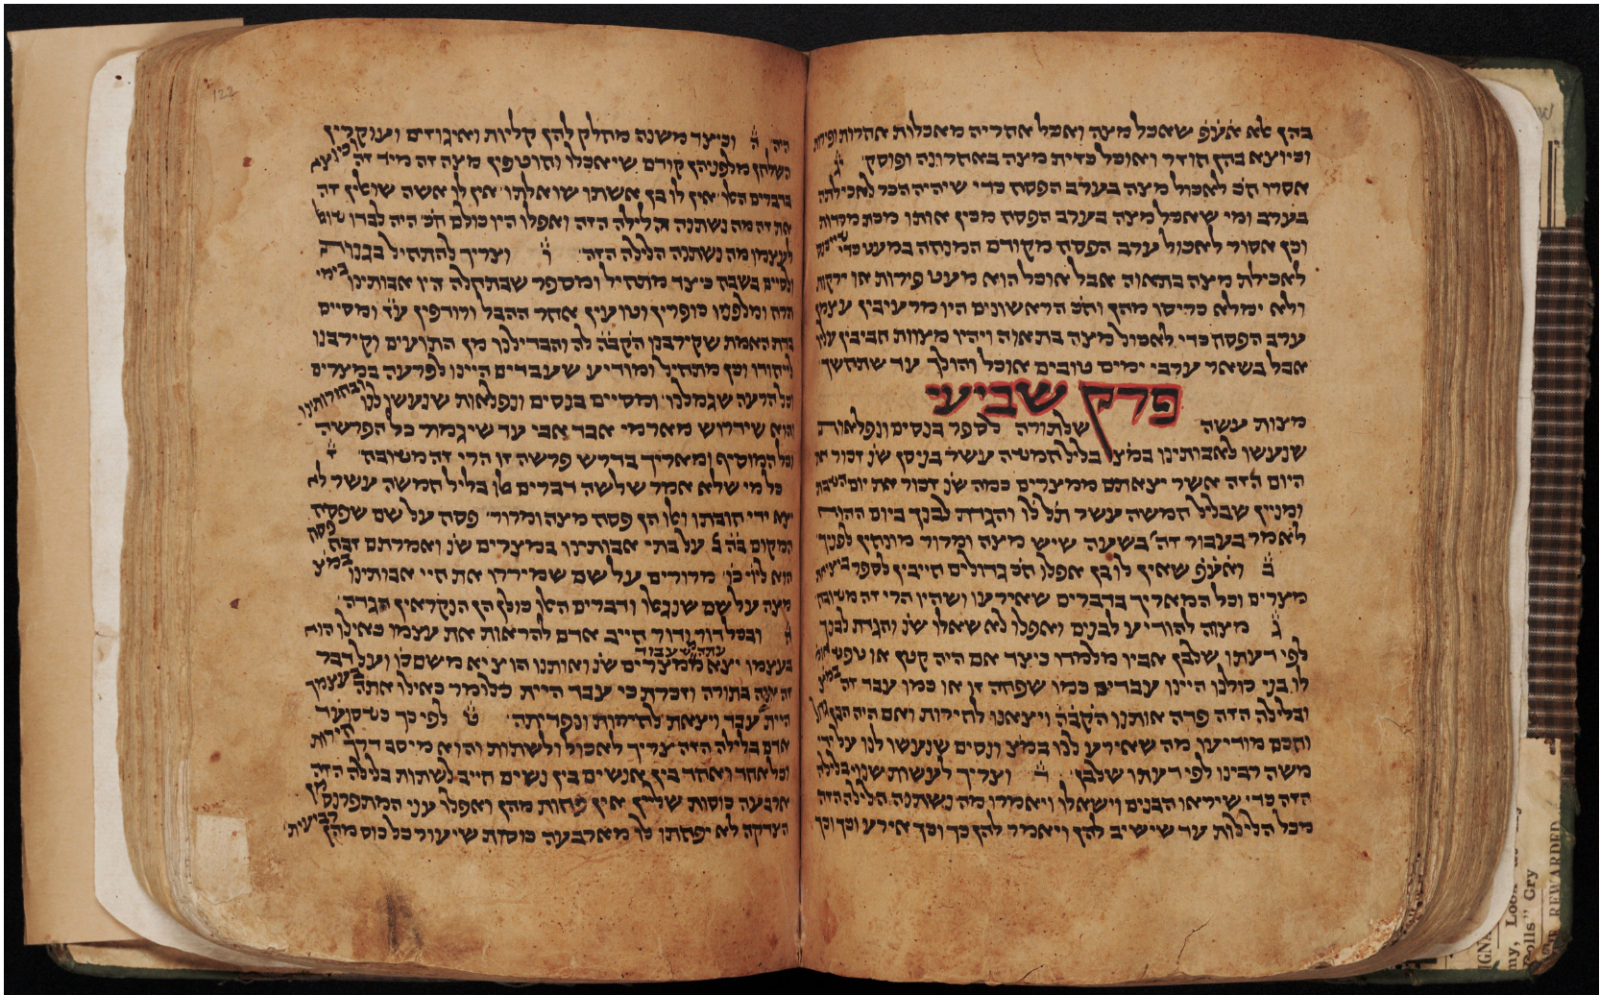 בהן ולא שאכל מצה ואכל אחריה מאכלות אחרות ופירות
וכיוצא בהן חוזר ואוכל כזית מצה באחרונה ופוסק׳ יב
אסרו חכ׳ לאכול מצה בערב הפסח כדי שיהיה הכר לאכילתה
בערב ומי שאכל מצה בערב הפסח מכין אותו מכת מרדות
וכן אסור לאכול ערב הפסח מקודם המנחה במעט כדי שיכנס
לאכילת מצה בתאוה אבל אוכל הוא מעט פירות או ירקות
ולא ימלא כריסו מהן וחכ׳ הראשונים היו מרעיבין עצמן
ערב הפסח כדי לאכול מצה בתאוה ויהיו מצוות חביבין עליו
אבל בשאר ערבי ימים טובים אוכל והולך עד שתחשך
פרק שביעי
מצות עשה שלתורה לספר בנסים ונפלאות
שנעשו לאבותינו במצ׳ בליל חמשה עשר בניסן שנ׳ זכור את
היום הזה אשר יצאתם ממצרים כמה שנ׳ זכור את יום השבת
ומניין שבליל חמשה עשר תל׳ לו׳ והגדת לבנך ביום ההוא
לאמר בעבור זה׳ בשעה שיש מצה ומרור מונחין לפניך
ב ואע׳פ שאין לו בן אפלו חכ׳ גדולים חייבין לספר ביציאת
מצרים וכל המאריך בדברים שאירעו ושהיו הרי זה משובח
ג מצוה להודיע לבנים ואפלו לא שאלו שנ׳ והגדת לבנך
לפי דעתו שלבן אביו מלמדו כיצד אם היה קטן או טפש אומ׳
לו בני כולנו היינו עבדים כמו שפחה זו או כמו עבד זה במצ׳
ובלילה הזה פדה אותנו הקב׳ה ויצאנו לחירות ואם היה הבן גדול
וחכם מודיעו מה שאירע לנו במצ׳ ונסים שנעשו לנו על ידי
משה רבינו לפי דעתו שלבן׳ ד וצריך לעשות שנוי בלילה
הזה כדי שיראו הבנים וישאלו ויאמרו מה נשתנה הלילה הזה
מכל הלילות עד שישיב להן ויאמר להן כך וכך אירע וכך וכך
היה׳ ה וכיצד משנה מחלק להן קליות ואיגוזים ועוקרין
השלחן מלפניהן קודם שיאכלו וחוטפין מצה זה מיד זה וכיוצא
בדברים האלו׳ אין לו בן אשתו שואלתו׳ אין לו אשה שואלין זה
את זה מה נשתנה הלילה הזה ואפלו היו כולם חכ׳ היה לבדו שואל
לעצמו מה נשתנה הלילה הזה׳ ו וצריך להתחיל בגנות
ולסיים בשבח כיצד מתחיל ומספר שבתחלה היו אבותינו בימי
תרח ומלפניו כופרין וטועין אחר ההבל ורודפין ע׳ז ומסיים
בדת האמת שקירבנו הקב׳ה לה והבדילנו מן התועים וקירבנו
ליחודו וכן מתחיל ומודיע שעבדים היינו לפרעה במצרים
וכל הרעה שגמלנו׳ ומסיים בנסים ונפלאות שנעשו לנו ובחירותינו
והוא שידרוש מארמי אבד אבי עד שיגמור כל הפרשה
וכל המוסיף ומאריך בדרש פרשה זו הרי זה משובח׳ ז
כל מי שלא אמר שלשה דברים אלו בליל חמשה עשר לא
יצא ידי חובתו ואלו הן פסח מצה ומרור׳ פסח על שם שפסח
המקום ב׳ה על בתי אבותינו במצרים שנ׳ ואמרתם זבח פסח
הוא ליי׳ כו׳ מרורים על שם שמיררו את חיי אבותינו במצ׳
מצה על שם שנגאלו ודברים האלו כולן הן הנקראין הגדה׳
ח ובכל דור ודור חייב אדם להראות את עצמו כאילו הוא
עתה משעבוד
בעצמו יצא ממצרים שנ׳ ואותנו הוציא משם כו׳ ועל דבר
זה צוה בתורה וזכרת כי עבד היית כלומר כאילו אתה בעצמך
היית עבד ויצאת לחירות ונפדיתה׳ ט לפי כך כשסועד
אדם בלילה הזה צריך לאכול ולשתות והוא מיסב דרך חירות
וכל אחד ואחד בין אנשים בין נשים חייב לשתות בלילה הזה
ארבעה כוסות שליין אין פחות מהן ואפלו עני המתפרנס מן
הצדקה לא יפחתו לו מארבעה כוסות שיעור כל כוס מהן רביעית׳